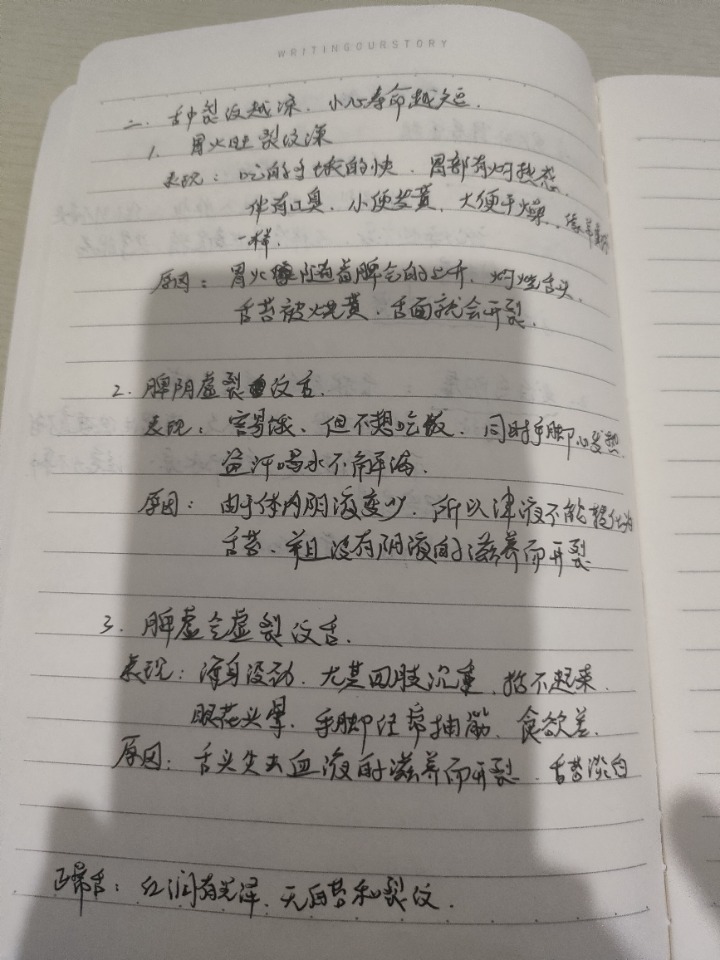 WRITINGOURSTORY
二、舌中裂纹越深、小心寿命越短.
1. 胃火旺裂纹深
表现：吃的多饿的快、胃部有灼热感,
伴有口臭、小便发黄、大便干燥、像羊粪
一样.
原因：胃火随着脾气的上升、灼烧舌头
舌苔被烧黄、舌面就会开裂.
2. 脾阴虚裂纹舌.
表现：容易饿、但不想吃饭、同时手脚心发热
盗汗喝水不解渴.
原因：由于体内阴液变少、所以津液不能转化为
舌苔、并且没有阴液的滋养而开裂
3. 脾虚气虚裂纹舌.
表现：浑身没劲、尤其四肢沉重、抬不起来.
眼花头晕、手脚经常抽筋、食欲差.
原因：舌头失去血液的滋养而开裂、舌苔淡白
正常舌：红润有光泽、无白苔和裂纹.